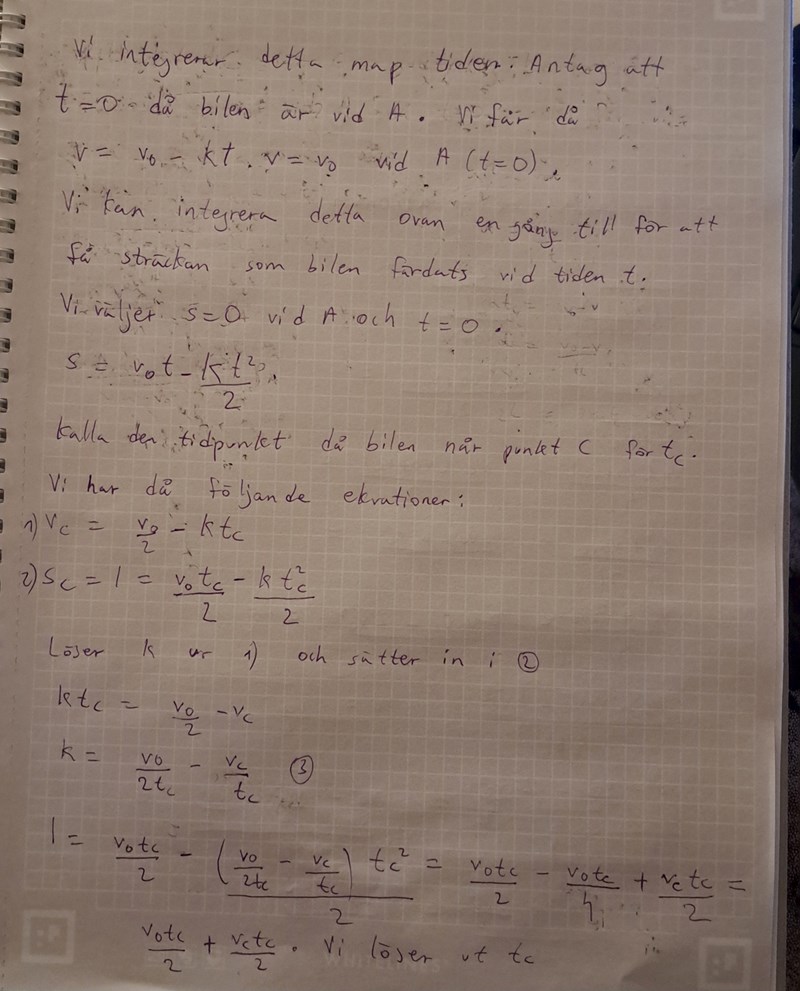 Vi integrerar detta map tiden: Antag att
t=0 då bilen är vid A. Vi får då
v = v₀ - kt. v = v₀ vid A (t=0).
Vi kan integrera detta ovan en gång till för att
få sträckan som bilen färdats vid tiden t.
Vi väljer s=0 vid A och t = 0.
s = v₀t - kt²/2.
Kalla den tidpunkt då bilen når punkt C för t_c.
Vi har då följande ekvationer:
1) v_c = v₀/2 - kt_c
2) s_c = l = v₀t_c/2 - kt_c²/2
Löser k ur 1) och sätter in i ②
kt_c = v₀/2 - v_c
k = v₀/2t_c - v_c/t_c ③
l = v₀t_c/2 - (v₀/2t_c - v_c/t_c) t_c²/2 = v₀t_c/2 - v₀t_c/4 + v_ct_c/2 =
v₀t_c/2 + v_ct_c/2. Vi löser ut t_c